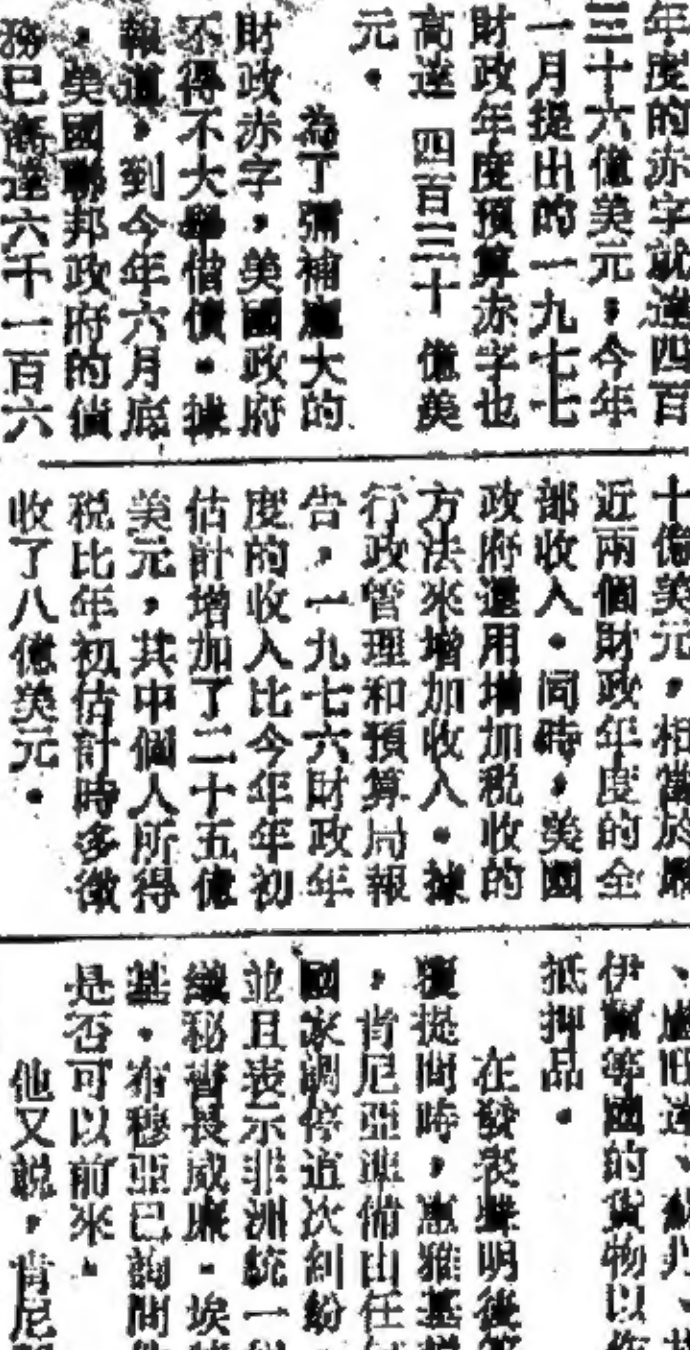 年度的赤字就達四百
三十六億美元，今年
一月提出的一九七七
財政年度預算赤字也
高達四百三十億美
元。
為了彌補龐大的
財政赤字，美國政府
不得不大舉借債。據
報道，到今年六月底
，美國聯邦政府的債
務已高達六千一百六
十億美元，相當於
近兩個財政年度的全
部收入。同時，美國
政府還用增加税收的
方法來增加收入。據
行政管理和預算局報
告，一九七六財政年
度的收入比今年年初
估計增加了二十五億
美元，其中個人所得
税比年初估計時多徵
收了八億美元。
、盧旺達、
伊爾等國的貨物以作
抵押品。
在發表聲明後答
覆提問時，
，肯尼亞準備由任何
國家調停這次糾紛，
並且表示非洲統一組
織秘書長威廉·埃
基·布穆亞已詢問他
是否可以前來。
他又説，肯尼亞